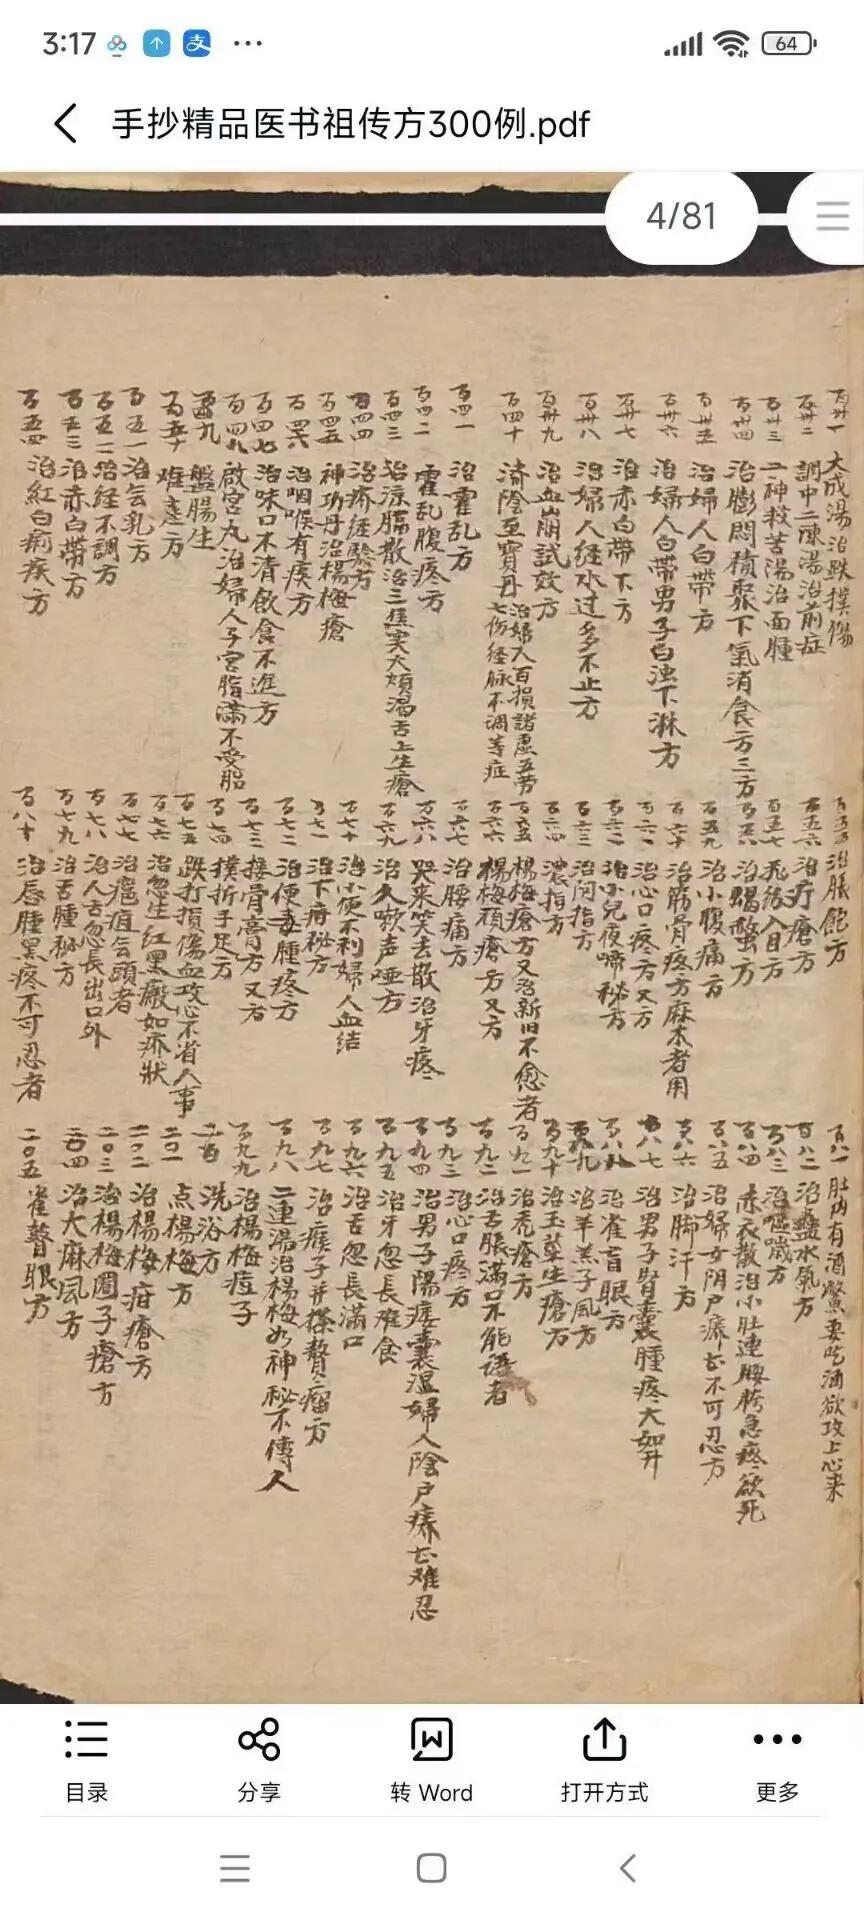 3:17
64
手抄精品医书祖传方300例.pdf
4/81
百卅一 大成湯治跌撲傷
百卅二 調中二陳湯治前症
百卅三 二神救苦湯治面腫
百卅四 治膨悶積聚下氣消食方三方
百卅五 治婦人白帶方
百卅六 治婦人白帶男子白浊下淋方
百卅七 治赤白帶下方
百卅八 治婦人経水过多不止方
百卅九 治血崩試效方
百四十 済陰至寶丹 治婦人百損諸虛五劳七伤経脉不調等症
百四一 治霍乱方
百四二 霍乱腹疼方
百四三 治涼膈散治三焦实大煩渴舌上生瘡
百四四 治疥経驗方
百四五 神功丹治楊梅瘡
百四六 治咽喉有痰方
百四七 治味口不清飲食不進方
百四八 啟宮丸治婦人子宮脂滿不受胎
百四九 盤腸生
百五十 难産方
百五一 治云乳方
百五二 治経不調方
百五三 治赤白帶方
百五四 治紅白痢疾方
百五五 治脹飽方
百五六 治疔瘡方
百五七 入目方
百五八 治蝎螫方
百五九 治小腹痛方
百六十 治筋骨疼方麻木者用
百六一 治心口疼方又方
百六二 治小兒夜啼秘方
百六三 治问指方
百六四 濃指方
百六五 楊梅瘡方又治新旧不愈者
百六六 楊梅頑瘡方又方
百六七 治腰痛方
百六八 哭来笑去散治牙疼
百六九 治久嗽声哑方
百七十 治小便不利婦人血结
百七一 治下疳秘方
百七二 治便毒腫疼方
百七三 接骨膏方又方
百七四 撲折手足方
百七五 跌打損傷血攻心不省人事
百七六 治忽生红黑癜如疥狀
百七七 治疤疽云頭者
百七八 治人舌忽長出口外
百七九 治舌腫秘方
百八十 治唇腫黑疼不可忍者
百八一 肚内有酒鱉要吃酒欲攻上心来
百八二 治蠱水氣方
百八三 治嘔噦方
百八四 赤衣散治小肚連腰胯急疼欲死
百八五 治婦女阴户痒甚不可忍方
百八六 治脚汗方
百八七 治男子腎囊腫疼大如升
百八八 治雀盲眼方
百八九 治羊羔子風方
百九十 治玉莖生瘡方
百九一 治禿瘡方
百九二 治舌脹滿口不能语者
百九三 治心口疼方
百九四 治男子陽痿囊温婦人陰户痒甚难忍
百九五 治牙忽長难食
百九六 治舌忽長滿口
百九七 治瘊子并搽贅瘤方
百九八 二連湯治楊梅如神秘不傳人
百九九 治楊梅痘子
二百 洗浴方
二〇一 点楊梅方
二〇二 治楊梅疳瘡方
二〇三 治楊梅圈子瘡方
二〇四 治大麻风方
二〇五 雀瞽眼方
目录
分享
转 Word
打开方式
更多